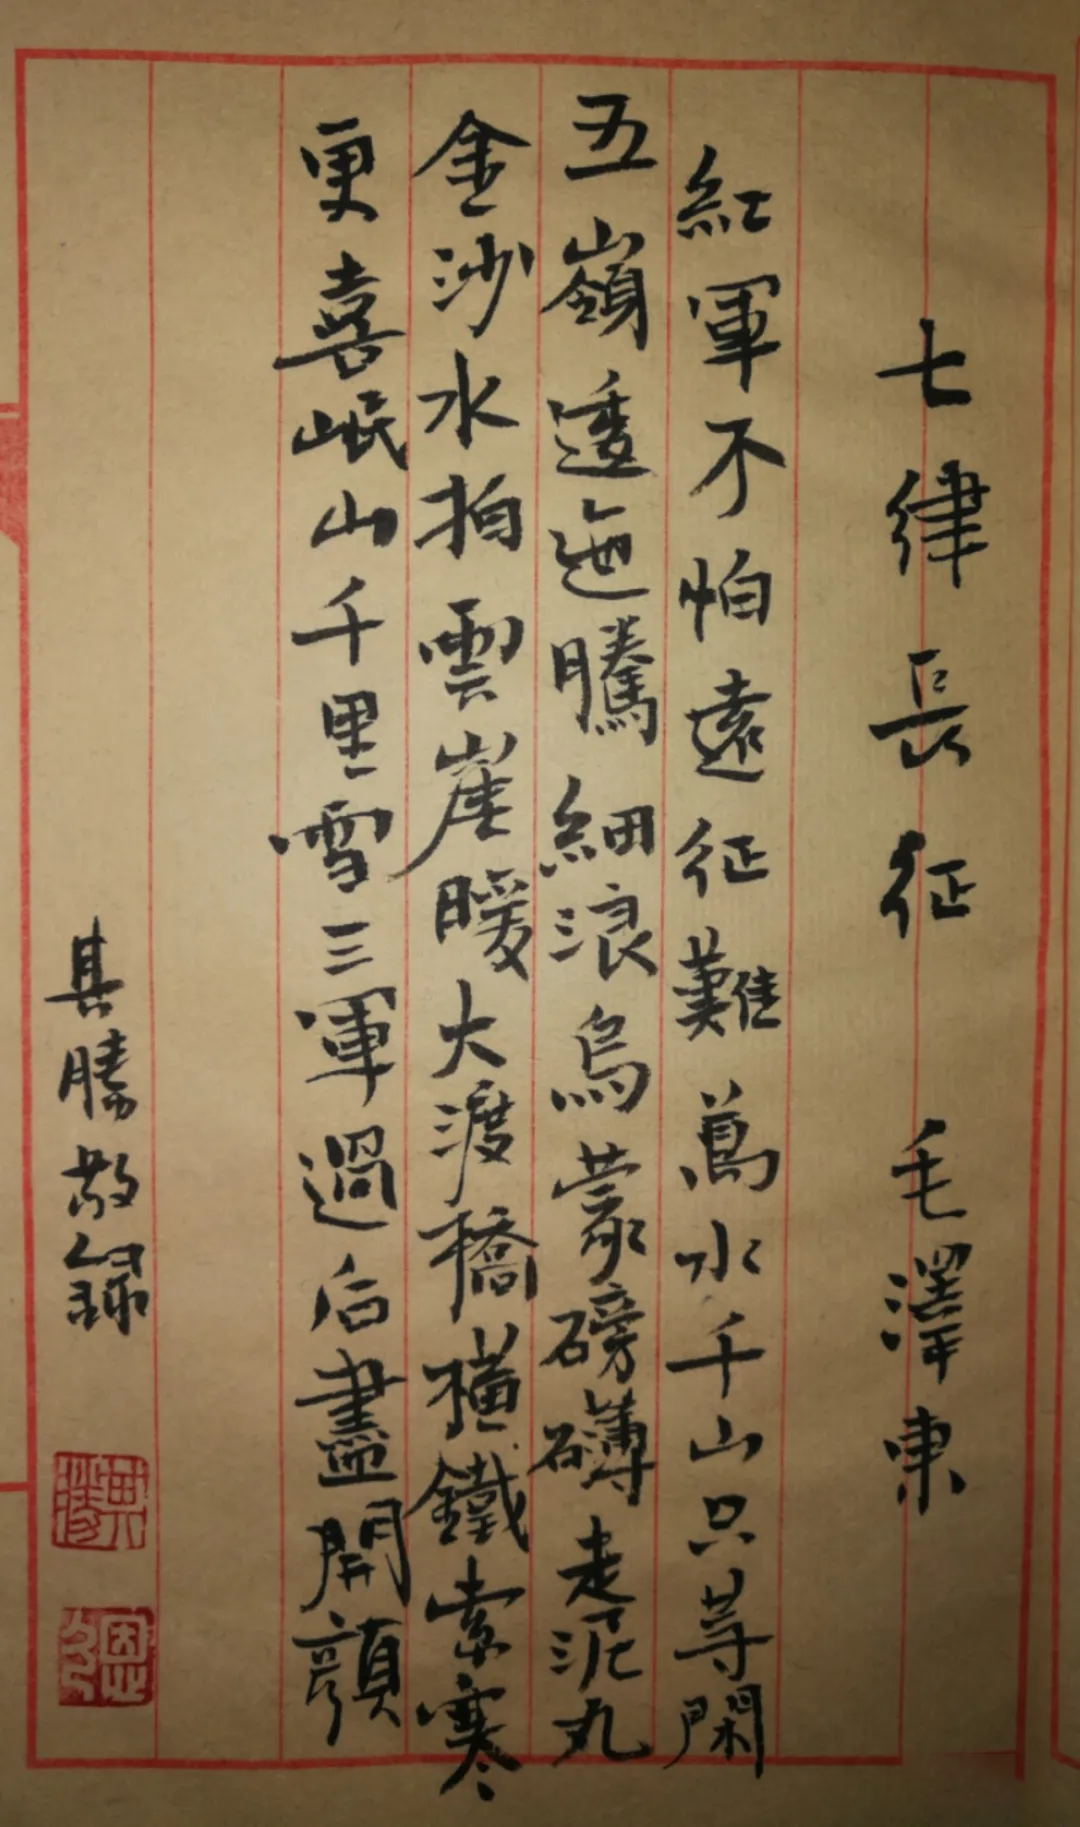 七律長征 毛澤東
紅軍不怕遠征難萬水千山只等閑
五嶺逶迤騰細浪烏蒙磅礴走泥丸
金沙水拍雲崖暖大渡橋橫鐵索寒
更喜岷山千里雪三軍過后盡開顏
其勝敬錄